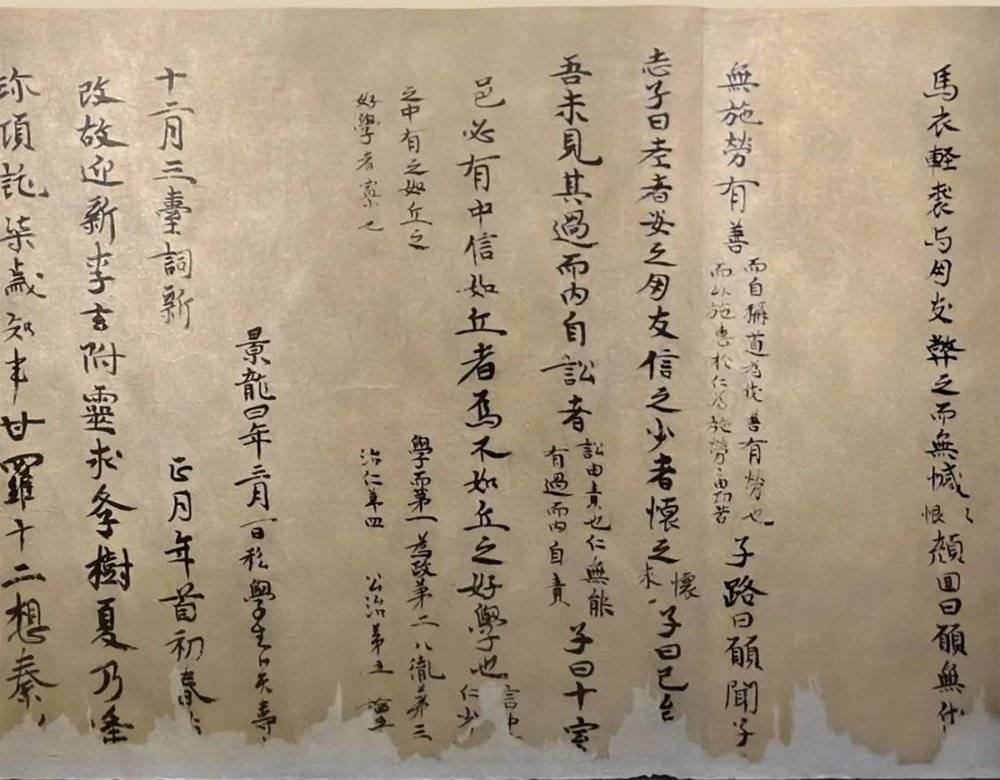 馬衣軽裘与朋友弊之而無憾〻恨顏回曰願無伐
無施勞有善而自稱道為伐善有勞也而以施惠於仁為施勞由功苦子路曰願聞子
志子曰老者安之朋友信之少者懷之懷来子曰已矣
吾未見其過而内自訟者訟由責也仁無能有過而内自責子曰十室
邑必有中信如丘者焉不如丘之好學也言中仁少
之中有之如丘之
好學者寡也
學而第一 為政第二 八佾第三
治仁第四 公治第五
景龍四年三月一日私學生卜天壽
十二月三臺詞新 正月年首初春〻
改故迎新李玄附靈求學樹夏乃逢
珎項託柒歲知事甘羅十二想秦〻